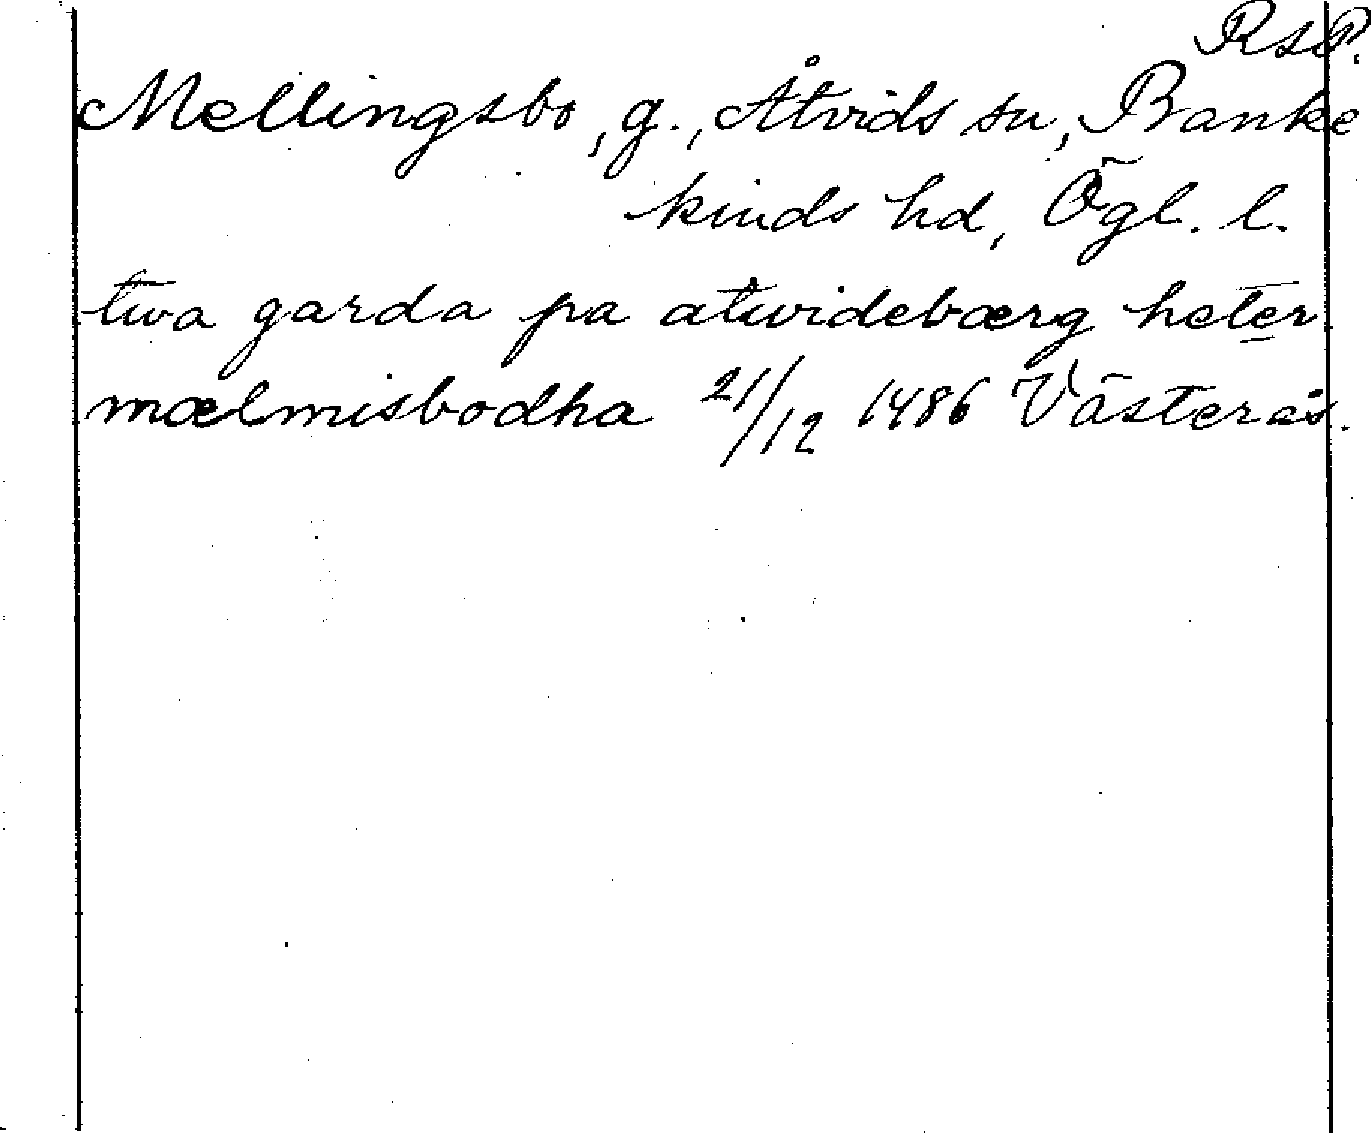 RsP.
Mellingsbo, g., Åtvids sn, Banke
kinds hd, Ögl. l.
twa garda pa atwidebærg heter
mælmisbodha 21/12 1486 Västerås.